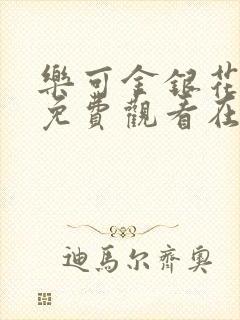 樂可金銀花
免費觀看在
迪馬尔齊奥